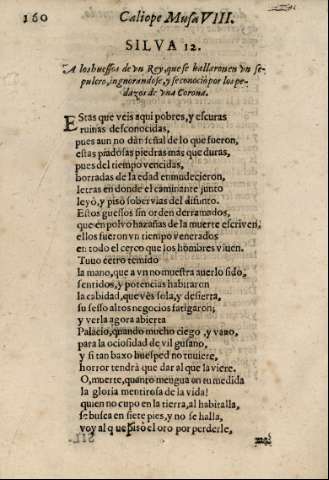 160
Caliope Musa VIII.
SILVA 12.
A los huessos de vn Rey, que se hallaron en vn se-
pulcro, ingnorandose, y se conociò por los pe-
dazos de vna Corona.
Estas que veis aqui pobres, y escuras
ruinas desconocidas,
pues aun no dàn señal de lo que fueron,
estas piadosas piedras mas que duras,
pues del tiempo vencidas,
borradas de la edad enmudecieron,
letras en donde el caminante junto
leyò, y pisò sobervias del difunto.
Estos guessos sin orden derramados,
que en polvo hazañas de la muerte escriven,
ellos fueron vn tiempo venerados
en todo el cerco que los hombres viuen.
Tuuo cetro temido
la mano, que a vn no muestra auerlo sido,
sentidos, y potencias habitaron
la cabidad, que vès sola, y desierta,
su sesso altos negocios fatigaron;
y verla agora abierta
Palacio, quando mucho ciego, y vano,
para la ociosidad de vil gusano,
y si tan baxo huesped no tuuiere,
horror tendrà que dar al que la viere.
O, muerte, quanto mengua en tu medida
la gloria mentirosa de la vida!
quien no cupo en la tierra, al habitalla,
se busca en siete pies, y no se halla,
voy al que pisò el oro por perderle,